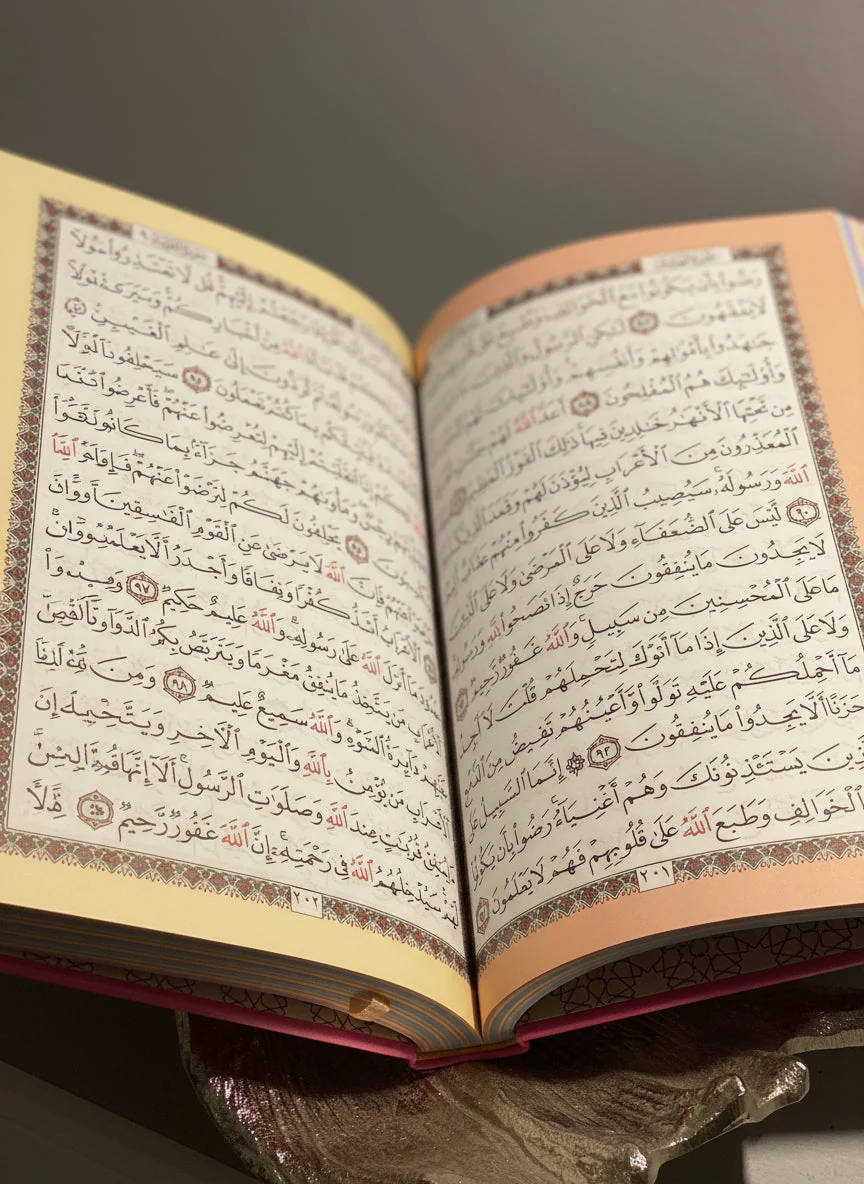 رَضُوا۟ بِأَن يَكُونُوا۟ مَعَ ٱلْخَوَالِفِ وَطُبِعَ
لَا يَفْقَهُونَ ٨٧ لَٰكِنِ ٱلرَّسُولُ وَٱلَّذِينَ
جَٰهَدُوا۟ بِأَمْوَٰلِهِمْ وَأَنفُسِهِمْ وَأُو۟لَٰٓئِكَ لَهُمُ
وَأُو۟لَٰٓئِكَ هُمُ ٱلْمُفْلِحُونَ ٨٨ أَعَدَّ ٱللَّهُ لَهُمْ
مِن تَحْتِهَا ٱلْأَنْهَٰرُ خَٰلِدِينَ فِيهَا ذَٰلِكَ ٱلْفَوْزُ ٱلْعَظِيمُ
ٱلْمُعَذِّرُونَ مِنَ ٱلْأَعْرَابِ لِيُؤْذَنَ لَهُمْ وَقَعَدَ ٱلَّذِينَ
ٱللَّهَ وَرَسُولَهُۥ سَيُصِيبُ ٱلَّذِينَ كَفَرُوا۟ مِنْهُمْ عَذَابٌ
٩٠ لَّيْسَ عَلَى ٱلضُّعَفَآءِ وَلَا عَلَى ٱلْمَرْضَىٰ وَلَا عَلَى ٱلَّذِينَ
لَا يَجِدُونَ مَا يُنفِقُونَ حَرَجٌ إِذَا نَصَحُوا۟ لِلَّهِ وَرَسُولِهِۦ
مَا عَلَى ٱلْمُحْسِنِينَ مِن سَبِيلٍ وَٱللَّهُ غَفُورٌ رَّحِيمٌ
وَلَا عَلَى ٱلَّذِينَ إِذَا مَآ أَتَوْكَ لِتَحْمِلَهُمْ قُلْتَ لَآ أَجِدُ
مَآ أَحْمِلُكُمْ عَلَيْهِ تَوَلَّوا۟ وَّأَعْيُنُهُمْ تَفِيضُ مِنَ ٱلدَّمْعِ
حَزَنًا أَلَّا يَجِدُوا۟ مَا يُنفِقُونَ ٩٢ إِنَّمَا ٱلسَّبِيلُ عَلَى
ٱلَّذِينَ يَسْتَـْٔذِنُونَكَ وَهُمْ أَغْنِيَآءُ رَضُوا۟ بِأَن يَكُونُوا۟
ٱلْخَوَالِفِ وَطَبَعَ ٱللَّهُ عَلَىٰ قُلُوبِهِمْ فَهُمْ لَا يَعْلَمُونَ
٢٠١
إِلَيْهِمْ قُل لَّا تَعْتَذِرُوا۟
ٱللَّهُ مِنْ أَخْبَارِكُمْ وَسَيَرَى
تُرَدُّونَ إِلَىٰ عَٰلِمِ ٱلْغَيْبِ
بِمَا كُنتُمْ تَعْمَلُونَ ٩٤ سَيَحْلِفُونَ
إِذَا ٱنقَلَبْتُمْ إِلَيْهِمْ لِتُعْرِضُوا۟ عَنْهُمْ فَأَعْرِضُوا۟
رِجْسٌ وَمَأْوَىٰهُمْ جَهَنَّمُ جَزَآءًۢ بِمَا كَانُوا۟
يَحْلِفُونَ لَكُمْ لِتَرْضَوْا۟ عَنْهُمْ فَإِن
عَنْهُمْ فَإِنَّ ٱللَّهَ لَا يَرْضَىٰ عَنِ ٱلْقَوْمِ ٱلْفَٰسِقِينَ
ٱلْأَعْرَابُ أَشَدُّ كُفْرًا وَنِفَاقًا وَأَجْدَرُ أَلَّا يَعْلَمُوا۟
حُدُودَ مَآ أَنزَلَ ٱللَّهُ عَلَىٰ رَسُولِهِۦ وَٱللَّهُ عَلِيمٌ حَكِيمٌ ٩٧ وَمِنَ
ٱلْأَعْرَابِ مَن يَتَّخِذُ مَا يُنفِقُ مَغْرَمًا وَيَتَرَبَّصُ بِكُمُ ٱلدَّوَآئِرَ
عَلَيْهِمْ دَآئِرَةُ ٱلسَّوْءِ وَٱللَّهُ سَمِيعٌ عَلِيمٌ ٩٨ وَمِنَ
ٱلْأَعْرَابِ مَن يُؤْمِنُ بِٱللَّهِ وَٱلْيَوْمِ ٱلْأٓخِرِ وَيَتَّخِذُ
قُرُبَٰتٍ عِندَ ٱللَّهِ وَصَلَوَٰتِ ٱلرَّسُولِ أَلَآ إِنَّهَا قُرْبَةٌ
لَّهُمْ سَيُدْخِلُهُمُ ٱللَّهُ فِى رَحْمَتِهِۦٓ إِنَّ ٱللَّهَ غَفُورٌ رَّحِيمٌ ٩٩
٢٠٢